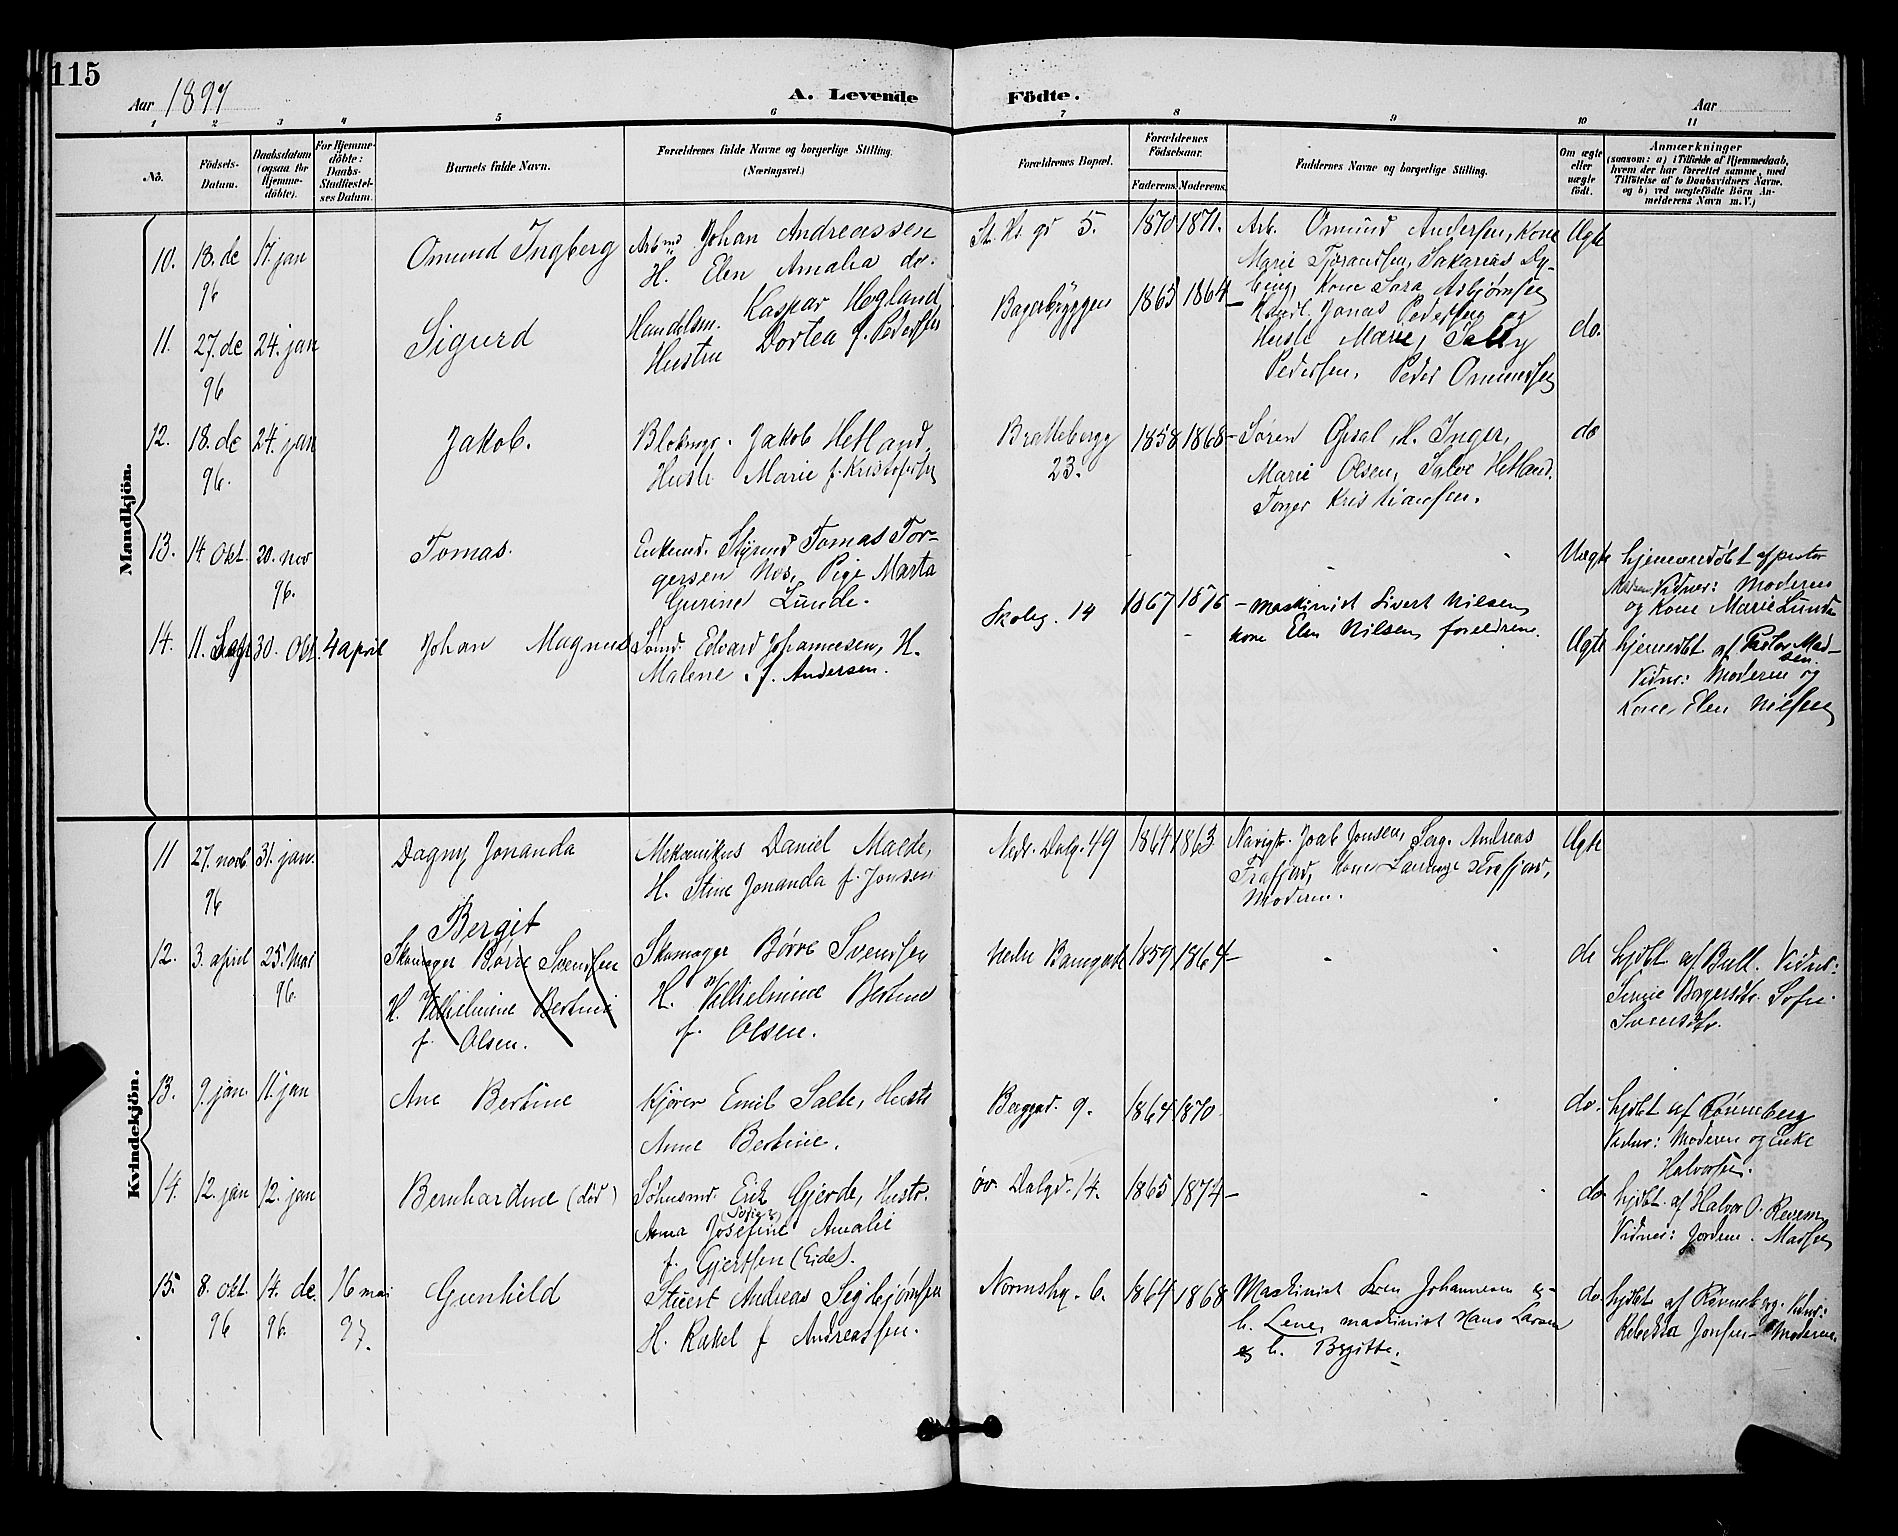 115
Aar 1897
A. Levende Födte.
Aar
1 2 3 4 5 6 7 8 9 10 11
No.
Födsels-Datum.
Daabsdatum (ogsaa for Hjemme-döbte).
For Hjemme-döbte: Daabs-Stadfæstel-ses Datum.
Barnets fulde Navn.
Forældrenes fulde Navne og borgerlige Stilling. (Næringsvei.)
Forældrenes Bopæl.
Forældrenes Födselsaar.
Faderens. Moderens.
Faddernes Navne og borgerlige Stilling.
Om ægte eller uægte födt.
Anmærkninger
(saasom: a) i Tilfælde af Hjemmedaab, hvem der har forrettet samme, med Tilföielse af to Daabsvidners Navne, og b) ved uægtefödte Börn An-melderens Navn m. V.)
Mandkjön.
10. 18. de 96 17. jan
Omund Ingberg
Arbmd Johan Andreassen
H. Elen Amalia do.
St. Hs gd 5. 1870 1871.
Arb. Omund Andersen, Kone
Marie Tjørandsen, Sakarias Dy-
bing, Kone Sara Asbjørnsen
Ægte
11. 27. de 96 24. jan
Sigurd
Handelsm. Kaspar Høgland
Hustru Dortea f. Pedersen
Bagerbryggen 1865 1864 –
Jonas Pedersen og
Hustr Marie, Sally
Pedersen, Peder Omundsen
do.
12. 18. de 96. 24. jan
Jakob.
Blokmgr. Jakob Hetland,
Hustr. Marie f. Kristofersen
Brattebergg 23. 1858 1868 –
Søren Opsal, H. Inger,
Marie Olsen, Salve Hetland.
Torger Kristiansen.
do
13. 14 Okt. 20. nov 96.
Tomas.
Enkemd. Styrmd Tomas Tor-
gersen Nos, Pige Marta
Gurine Lunde.
Uægte
hjemmedøbt af pastor
Madsen Vidner: Moderen
og Kone Marie Lunde
14. 11. Sept 30. Okt. 4 april
Johan Magnus
Sømd. Edvard Johannesen, H.
Malene f. Andersen.
Skoleg. 14 1867 1876
– maskinist Sivert Nilsen,
kone Elen Nilsen, foreldrene.
Ægte
hjemdbt af Pastor Mad-
sen.
Vidnr: Moderen og
Kone Elen Nilsen
Kvindekjön.
11 27. novb 96 31. jan.
Dagny Jonanda
Mekanikus Daniel Malde,
H. Stine Jonanda f. Jonsen
Nedr. Dalg. 49 1864 1863
Navigtr. Joab Jonsen, Serg. Andreas
Frafjord, Kone Frafjord,
Moderen.
Ægte
12. 3. april 25. Mai 96.
Bergit
Skomager Børre Svendsen
H. Vilhelmine Bertine
f. Olsen.
Skomager Børre Svendsen
H. Vilhelmine Bertine
f. Olsen.
Nedre Banegade 1859 1864 –
do
hjdbt. af Bull. Vidnr:
Bergersdtr. Sofie
Svensdtr.
13. 9. jan. 11. jan
Ane Bertine
Kjører Emil Salte, Hustr
Anne Bertine.
Berggd. 9. 1864 1870.
do.
hjdbt af Rønneberg
Vidnr: Moderen og Enke
Halvorsen.
14. 12. jan 12. jan
Bernhardine (død)
Søhusmd. Erik Gjerde, Hustr.
(Sofie)
Anna Josefine Amalie
f. Gjertsen (Eide).
øv. Dalgd. 14. 1865 1874 –
do
hjdbt. af Halvor O. Revem
Vidner: Jordem. Madsen
15. 8. okt. 96 14. de. 96. 16 mai 97.
Gunhild
Stuert Andreas Segbjørnsen
H. Rakel f Andreassen.
Normshg. 6. 1864 1868
Maskinist Sven Johannesen og
h. Lene, maskinist Hans Larsen
og h. Bergitte.
do.
hjdbt af Rønneberg. Vidnr:
Rebekka Jonsen – Moderen